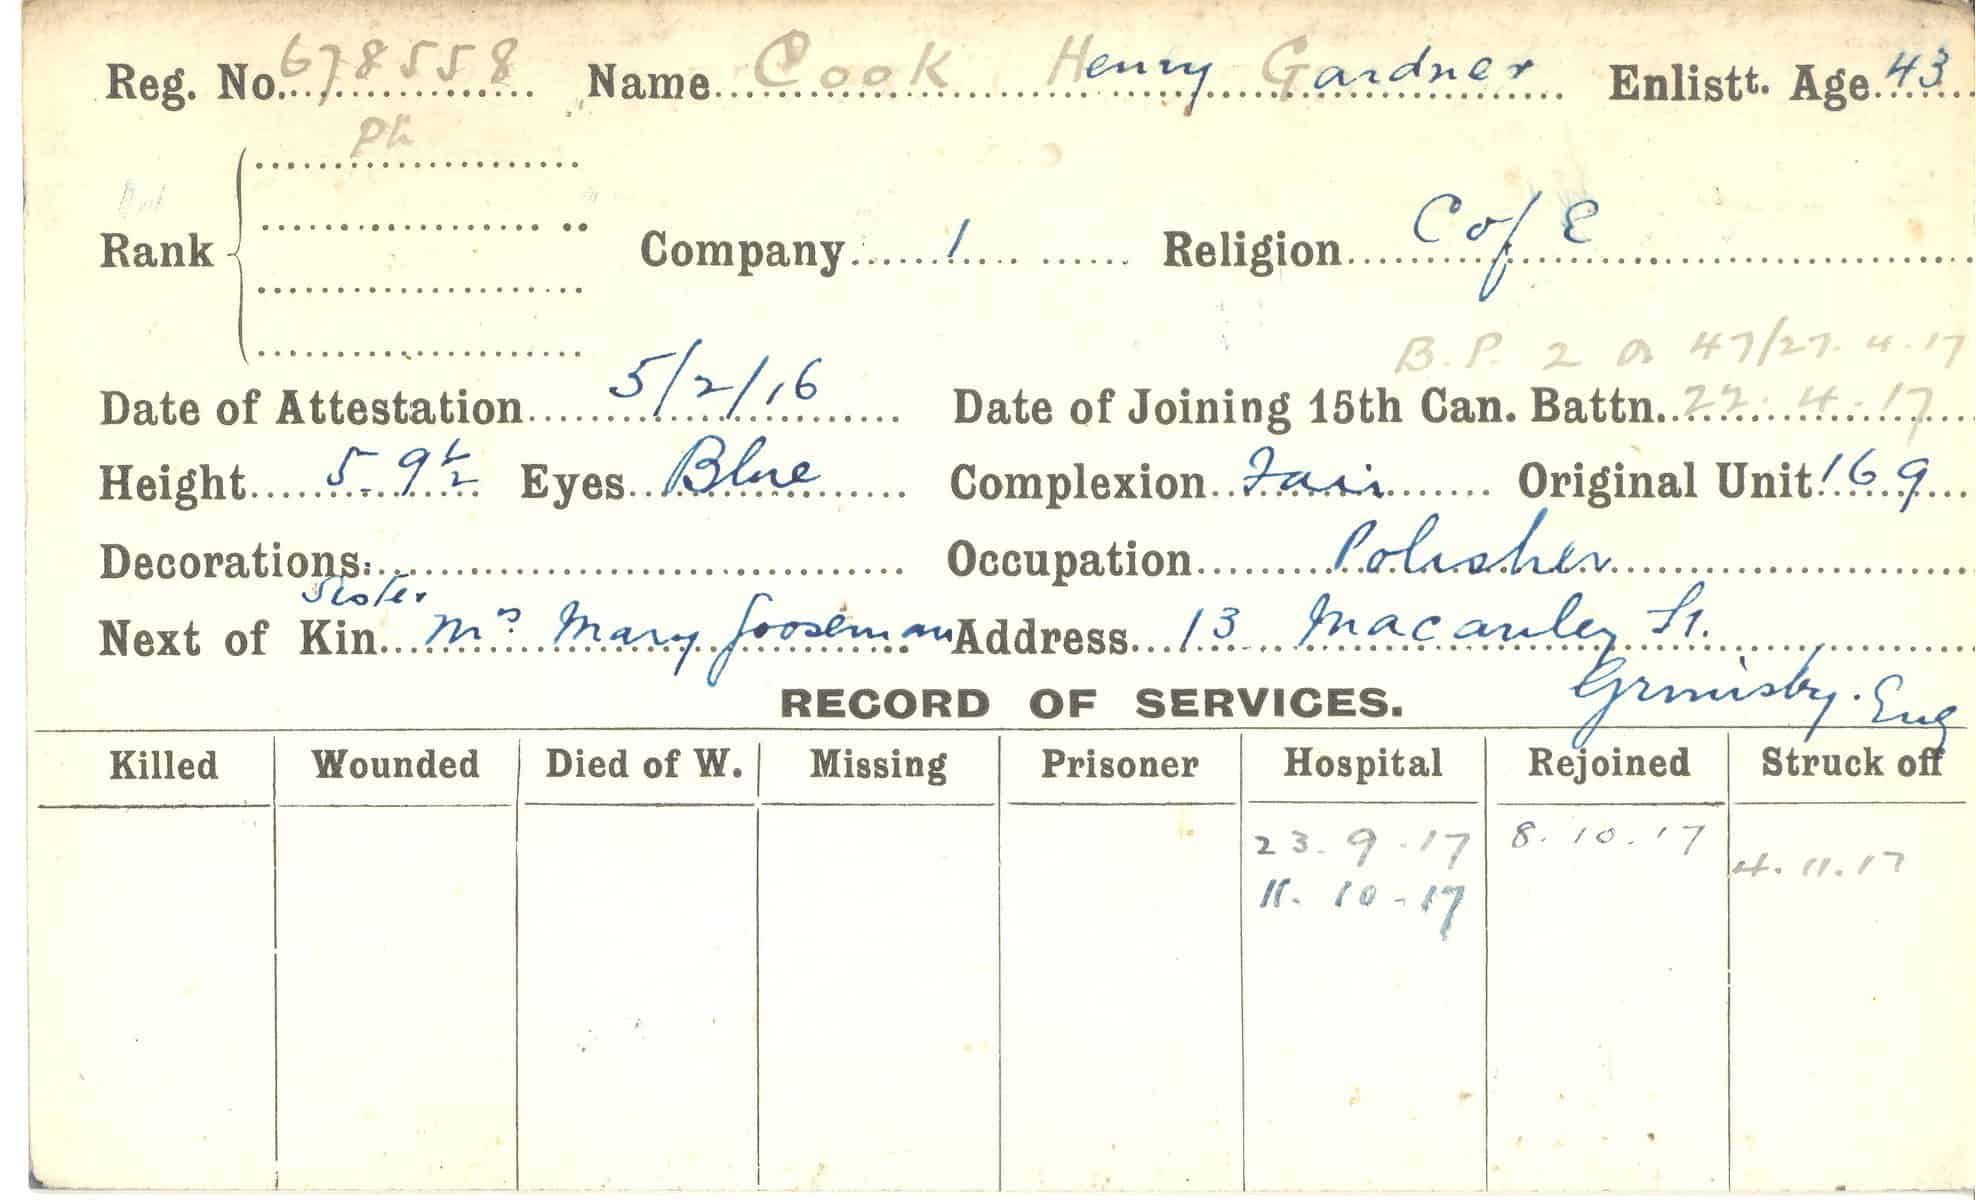 Reg. No. 678558 Name Cook Henry Gardner Enlistt. Age 43
Rank Company 1 Religion C of E
B.P. 2 O 47/27.4.17
Date of Attestation 5/2/16 Date of Joining 15th Can. Battn. 22.4.17
Height 5-9½ Eyes Blue Complexion Fair Original Unit 169
Decorations Occupation Polisher
Sister
Next of Kin Mrs Mary Gooseman Address 13 Macauley St.
Grmisby. Eng
RECORD OF SERVICES.
Killed Wounded Died of W. Missing Prisoner Hospital Rejoined Struck off
23.9.17 8.10.17 4.11.17
11.10-17